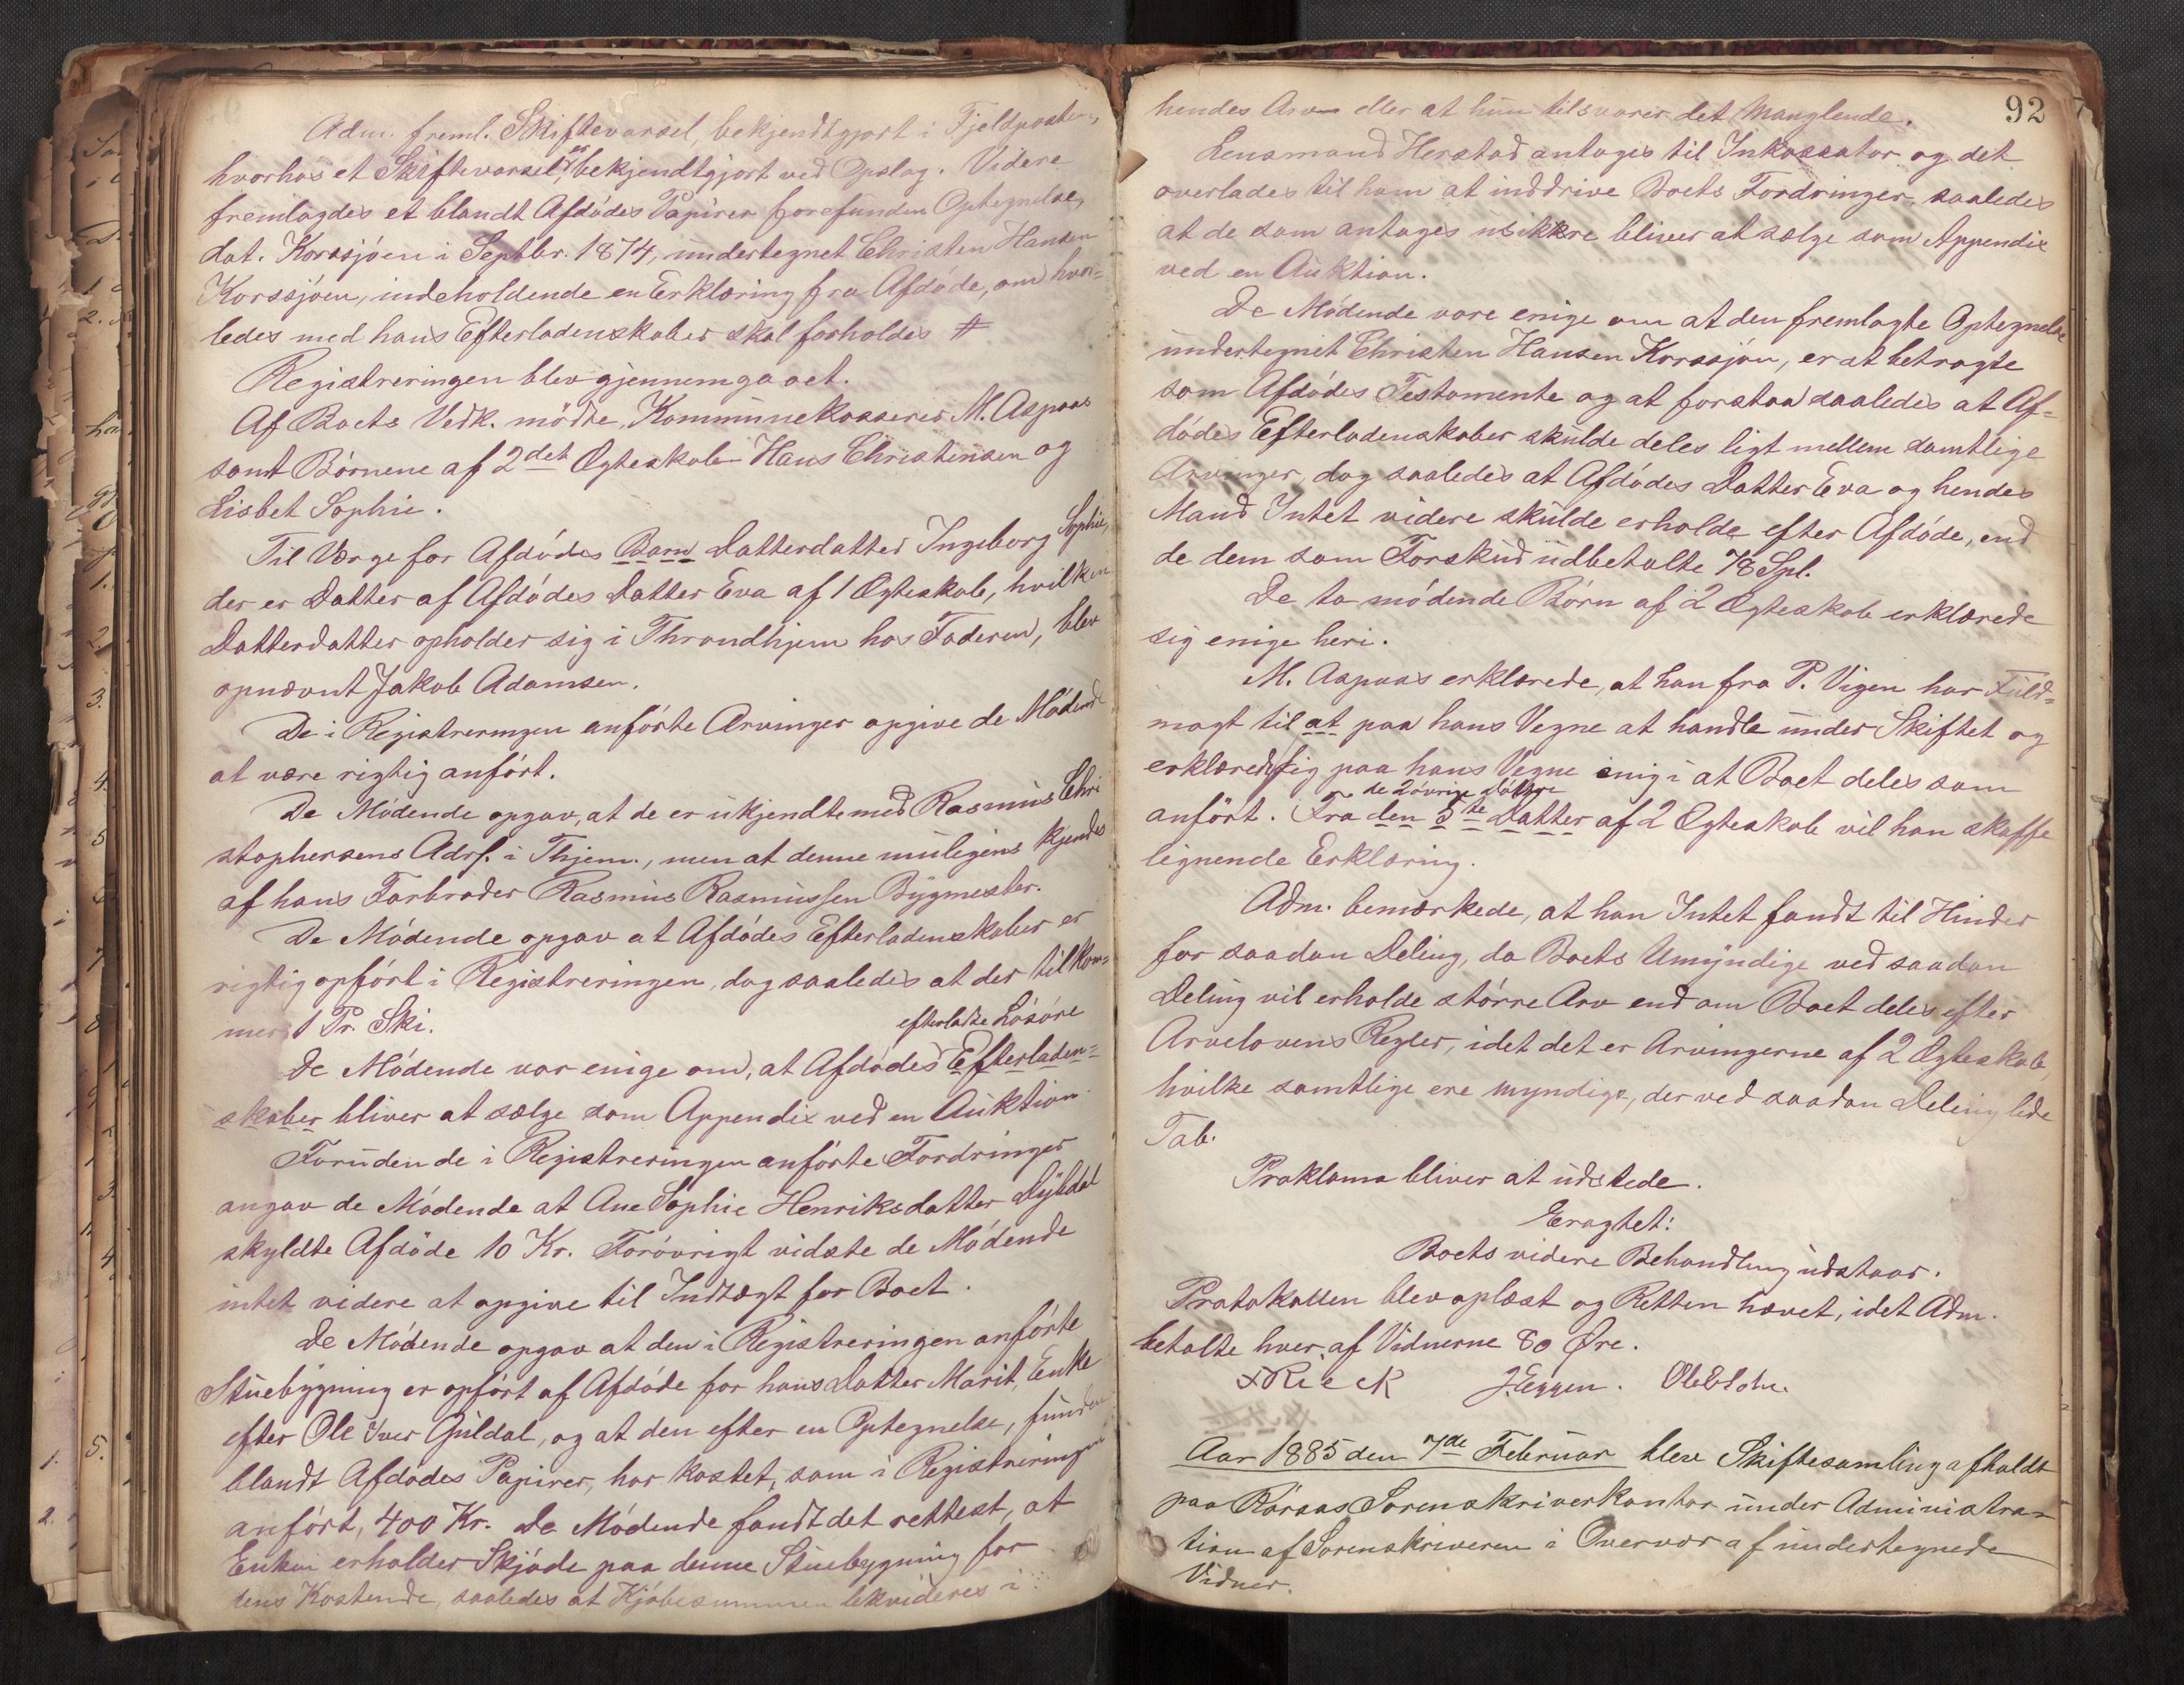 Adm. freml. Skiftevarsel, bekjendtgjort i Fjeldposten,
hvorhos et Skiftevarsel, er bekjendtgjort ved Opslag. Videre
fremlagdes et blandt Afdødes Papirer forefunden Optegnelse,
dat. Korssjøen i Septbr. 1874, undertegnet Christen Hansen
Korssjøen, indeholdende en Erklæring fra Afdøde, om hvor-
ledes med hans Efterladenskaber skal forholdes #
Registreringen blev gjennemgaaet.
Af Boets Vedk. mødte, Kommunekasserer M. Aspaas
samt Børnene af 2det Ægteskab Hans Christensen og
Lisbet Sophie.
Til Værge for Afdødes Barn Datterdatter Ingeborg Sophie,
der er Datter af Afdødes Datter Eva af 1 Ægteskab, hvilken
Datterdatter opholder sig i Throndhjem hos Faderen, blev
opnævnt Jakob Adamsen.
De i Registreringen anførte Arvinger opgive de Mødende
at være rigtig anført.
De Mødende opgav, at de er ukjendte med Rasmus Chri
stophersens Adrs. i Thjem., men at denne muligens kjendes
af hans Farbroder Rasmus Rasmussen Bygmester.
De Mødende opgav at Afdødes Efterladenskaber er
rigtig opført i Registreringen, dog saaledes at der tilkom-
mer 1 Pr. Ski.
efterladte Løsøre
De Mødende var enige om, at Afdødes Efterladen-
skaber bliver at sælge som Appendix ved en Auktion
Foruden de i Registreringen anførte Fordringer
angav de Mødende at Ane Sophie Henriksdatter Dybdal
skyldte Afdøde 10 Kr. Forøvrigt vidste de Mødende
intet videre at opgive til Indtægt for Boet.
De Mødende opgav at den i Registreringen anførte
Stuebygning er opført af Afdøde for hans Datter Marit, Enke
efter Ole Iver Guldal, og at den efter en Optegnelse, funden
blandt Afdødes Papirer, har kostet, som i Registreringen
anført, 400 Kr. De Mødende fandt det rettest, at
Enken erholder Skjøde paa denne Stuebygning for
dens Kostende, saaledes at Kjøbesummen likvideres i
92
hendes Arv eller at hun tilsvarer det Manglende.
Lensmand Herstad antages til Inkassator og det
overlades til ham at inddrive Boets Fordringer, saaledes
at de som antages usikkre bliver at sælge som Appendix
ved en Auktion.
De Mødende vare enige om at den fremlagte Optegnelse
undertegnet Christen Hansen Korssjøen, er at betragte
som Afdødes Testamente og at forstaa saaledes at Af-
dødes Efterladenskaber skulde deles ligt mellem samtlige
Arvinger, dog saaledes at Afdødes Datter Eva og hendes
Mand Intet videre skulde erholde efter Afdøde, end
de dem som Forskud udbetalte 78 Spl.
De to mødende Børn af 2 Ægteskab erklærede
sig enige heri.
M. Aspaas erklærede, at han fra P. Vigen har Fuld-
magt til at paa hans Vegne at handle under Skiftet og
erklærede sig paa hans Vegne enig i at Boet deles som
de 2 øvrige Døttre
anført. Fra den 5te Datter af 2 Ægteskab vil han skaffe
lignende Erklæring.
Adm. bemærkede, at han Intet fandt til Hinder
for saadan Deling, da Boets Umyndige ved saadan
Deling vil erholde større Arv end om Boet deles efter
Arvelovens Regler, idet det er Arvingerne af 2 Ægteskab,
hvilke samtlige ere myndige, der ved saadan Deling lide
Tab.
Proklama bliver at udstede.
Eragtet:
Boets videre Behandling udstaar.
Protokollen blev oplæst og Retten hævet, idet Adm.
betalte hver af Vidnerne 80 Øre.
Rieck J. Eggen.
Aar 1885 den 7de Februar blev Skiftesamling afholdt
paa Røraas Sorenskriverkontor under Administra-
tion af Sorenskriveren i Overvær af undertegnede
Vidner.